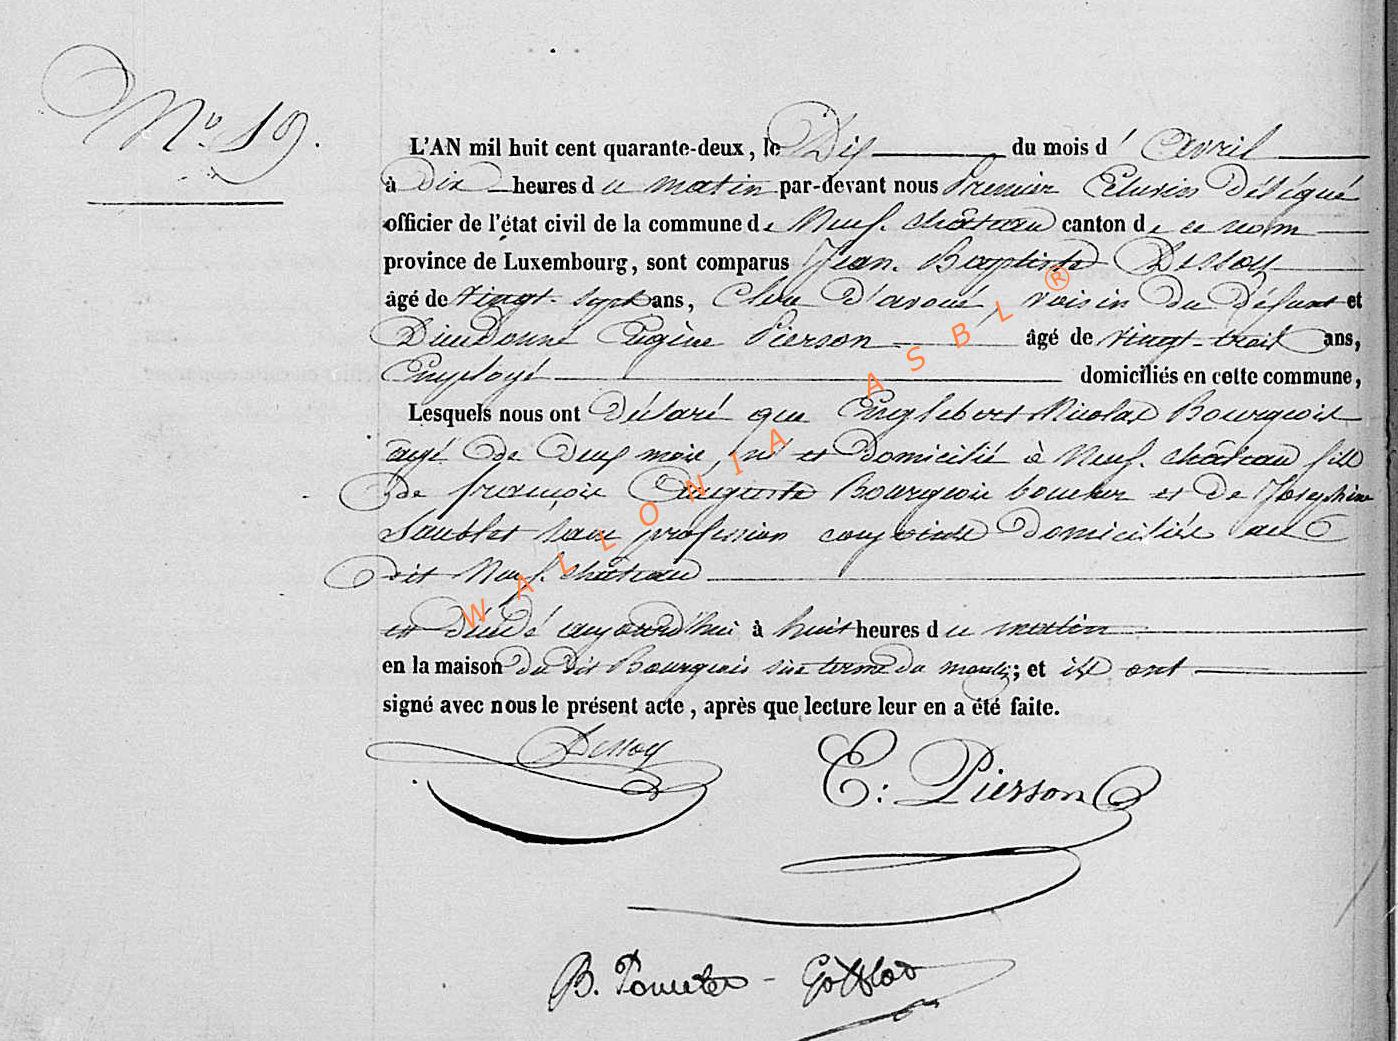 N° 19.
L'AN mil huit cent quarante-deux, le Dix du mois d' avril
à dix heures du matin par-devant nous Premier Echevin Délégué
officier de l'état civil de la commune de Neufchâteau canton de ce nom
province de Luxembourg, sont comparus Jean Baptiste Dessoy
âgé de vingt-sept ans, Clerc d'avoué, voisin du défunt et
Dieudonné Eugène Pierson âgé de vingt-trois ans,
Employé domiciliés en cette commune,
Lesquels nous ont déclaré que Englebert Nicolas Bourgeois
âgé de deux mois, né et domicilié à Neufchâteau fils
de françois Auguste Bourgeois boucher et de Joséphine
sans profession conjoints domiciliés au
dit Neufchâteau
est décédé aujourd'hui à huit heures du matin
en la maison du dit Bourgeois sise terme du moulin; et ils ont
signé avec nous le présent acte, après que lecture leur en a été faite.
Dessoy
E: Pierson
B.
WALLONIA ASBL ®